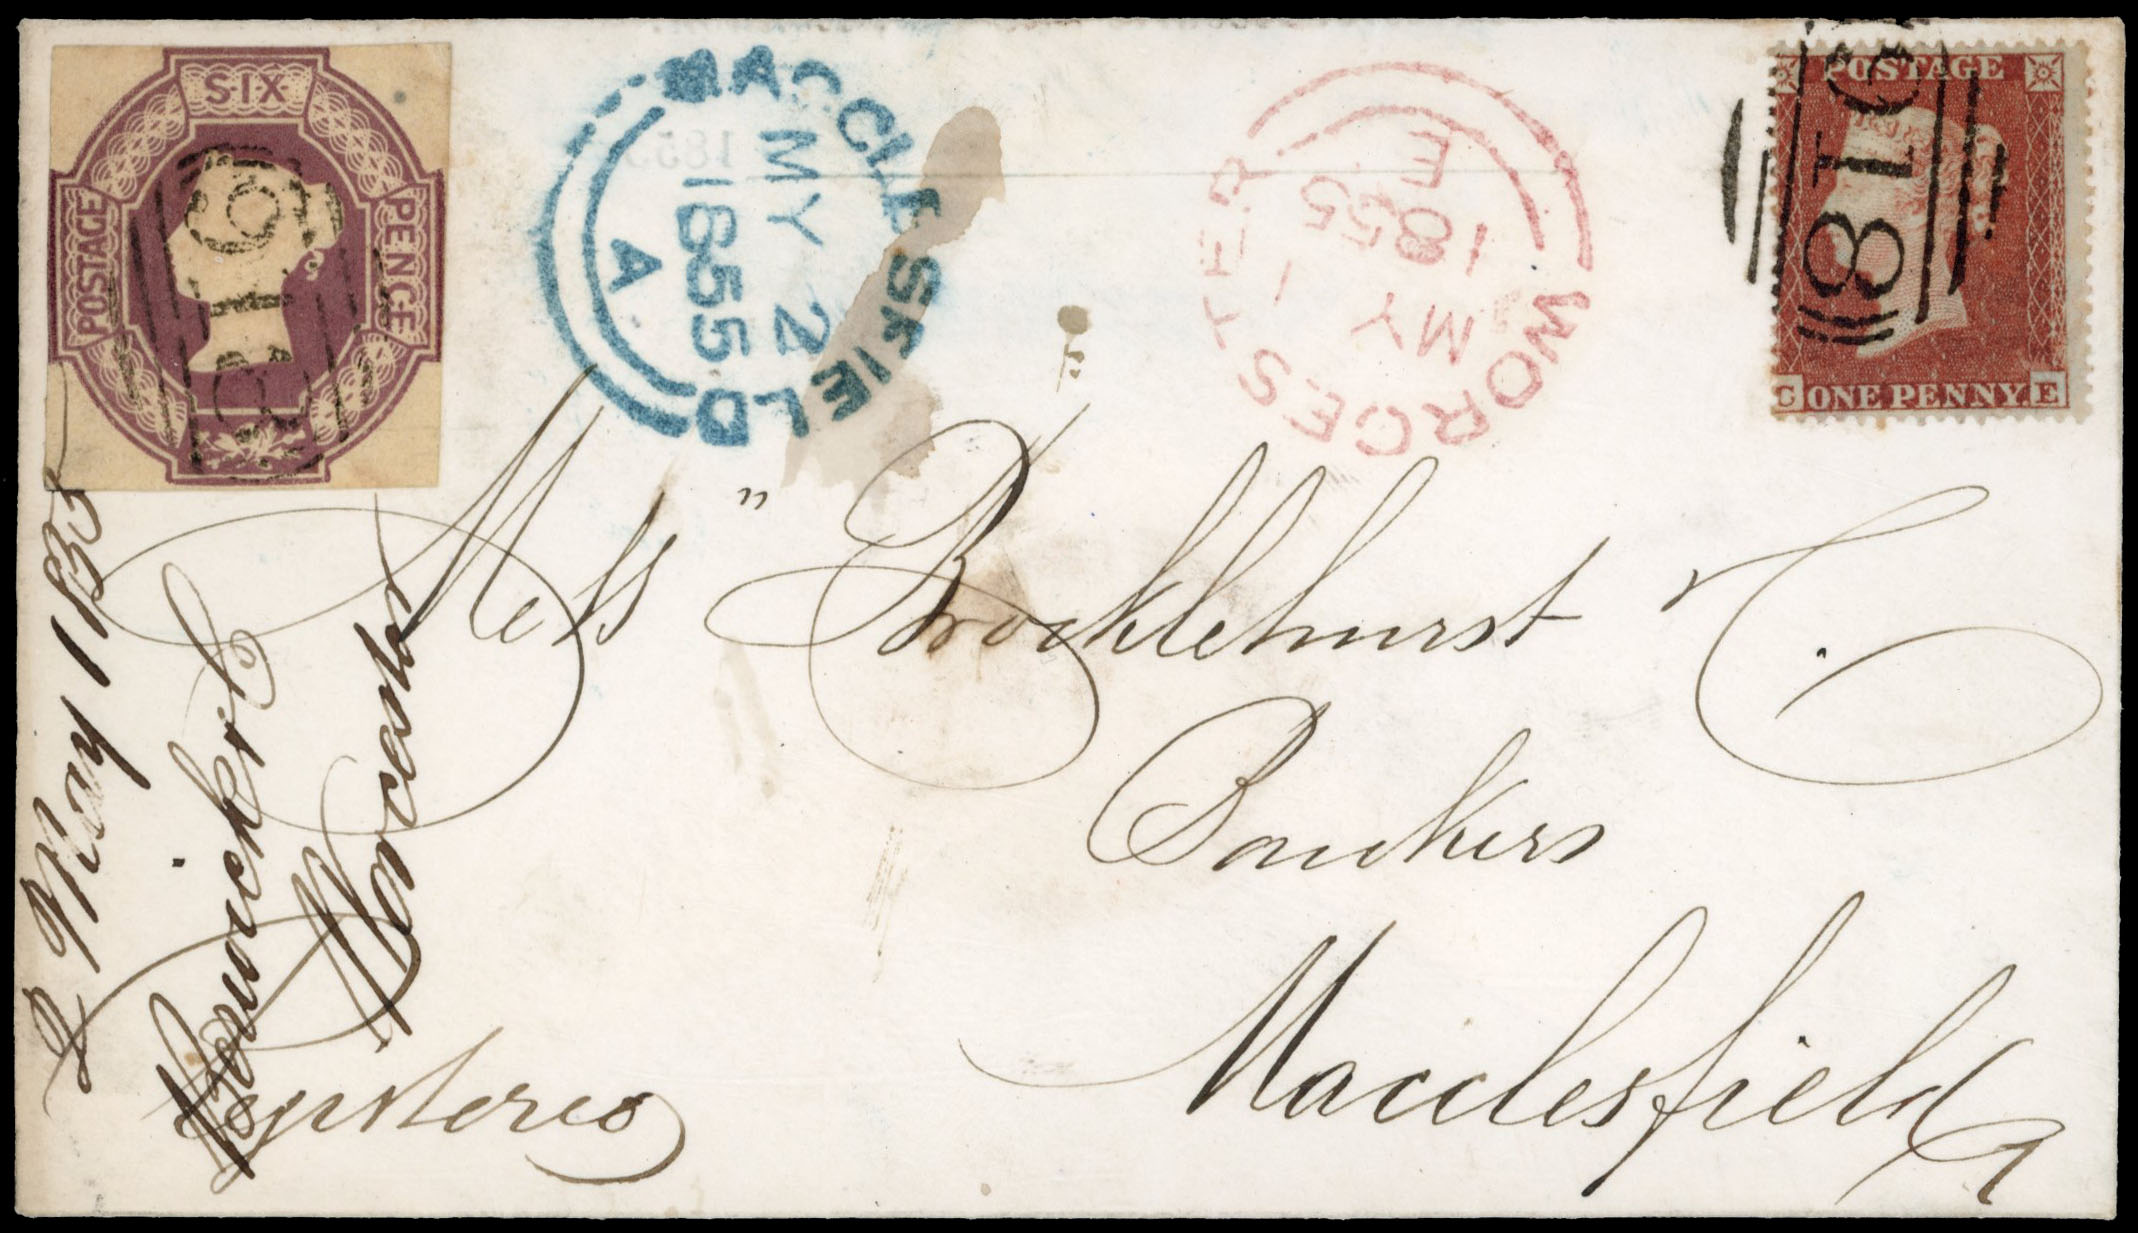 SIX
POSTAGE
PENCE
816
MACCLESFIELD
MY 2
1855
A
WORCESTER
MY 1
1855
E
POSTAGE
816
C ONE PENNY E
Mess" Brocklehurst & C.
Bankers
Macclesfield
Registered
2 May 1855
Worcester